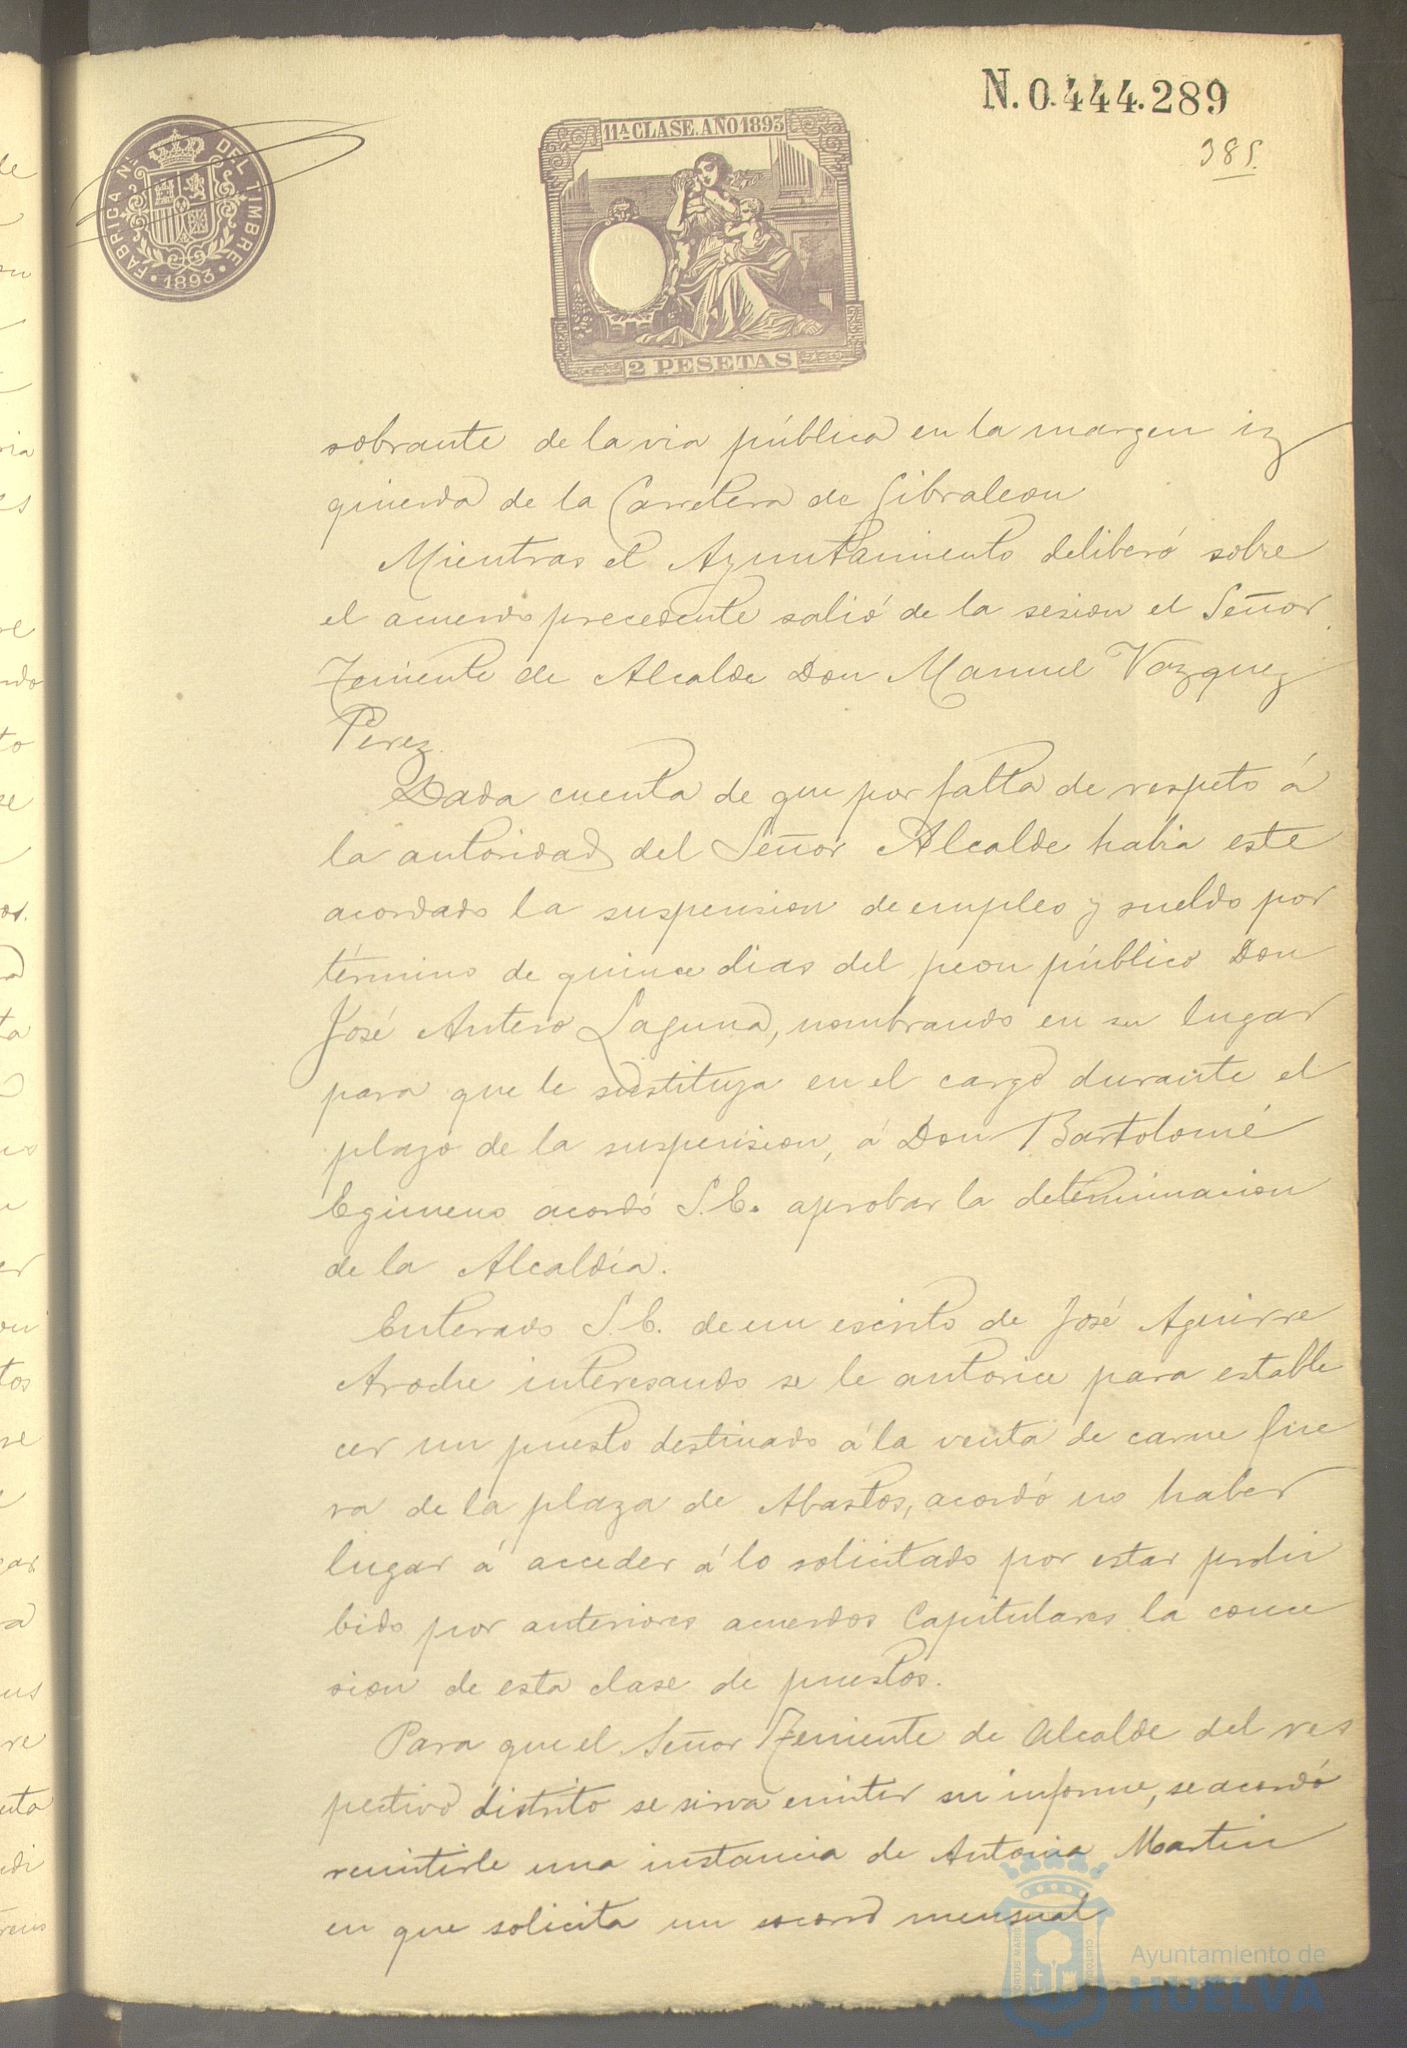 N. 0.444.289
385.
FABRICA Nª DEL TIMBRE
1893
11ª CLASE. AÑO 1893
2 PESETAS
sobrante de la via pública en la margen iz
quierda de la Carretera de Gibraleon
Mientras el Ayuntamiento deliberó sobre
el acuerdo precedente salió de la sesion el Señor
Teniente de Alcalde Don Manuel Vazquez
Perez.
Dada cuenta de que por falta de respeto á
la autoridad del Señor Alcalde habia este
acordado la suspension de empleo y sueldo por
término de quince dias del peon público Don
José Antero Laguna, nombrando en su lugar
para que le sustituya en el cargo durante el
plazo de la suspension, á Don Bartolomé
Egimeno acordó S.E. aprobar la determinacion
de la Alcaldía.
Enterado S.E. de un escrito de José Aguirre
Aroche interesando se le autorice para estable
cer un puesto destinado á la venta de carne fue
ra de la plaza de Abastos, acordó no haber
lugar á acceder á lo solicitado por estar prohi
bido por anteriores acuerdos Capitulares la conce
sion de esta clase de puestos.
Para que el Señor Teniente de Alcalde del res
pectivo distrito se sirva emitir su informe, se acordó
remitirle una instancia de Antonia Martin
en que solicita un socorro mensual
Ayuntamiento de
HUELVA